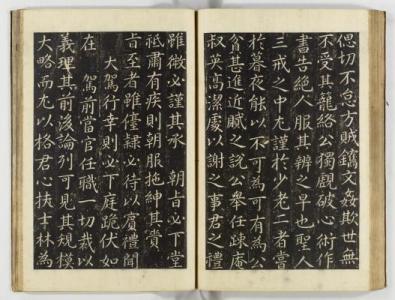 偲切不怠方賊鑴文姦欺世無
不受其籠絡公獨觀破心術作
書告絕人服其辨之早也聖人
三戒之中尤謹於少老二者嘗
於暮夜能以不可為可有為公
貧甚進近賦之說公奉任疎庵
叔英高潔處以謝之事君之禮
雖微必謹其承 朝旨必下堂
祗肅有疾則朝服拖紳其貴
旨至者雖僮隸必待以賓禮聞
大駕行幸則必下庭跪伏如
在 駕前當官任職一切裁以
義理其前後論列可見其規模
大略而尤以格君心扶士林為